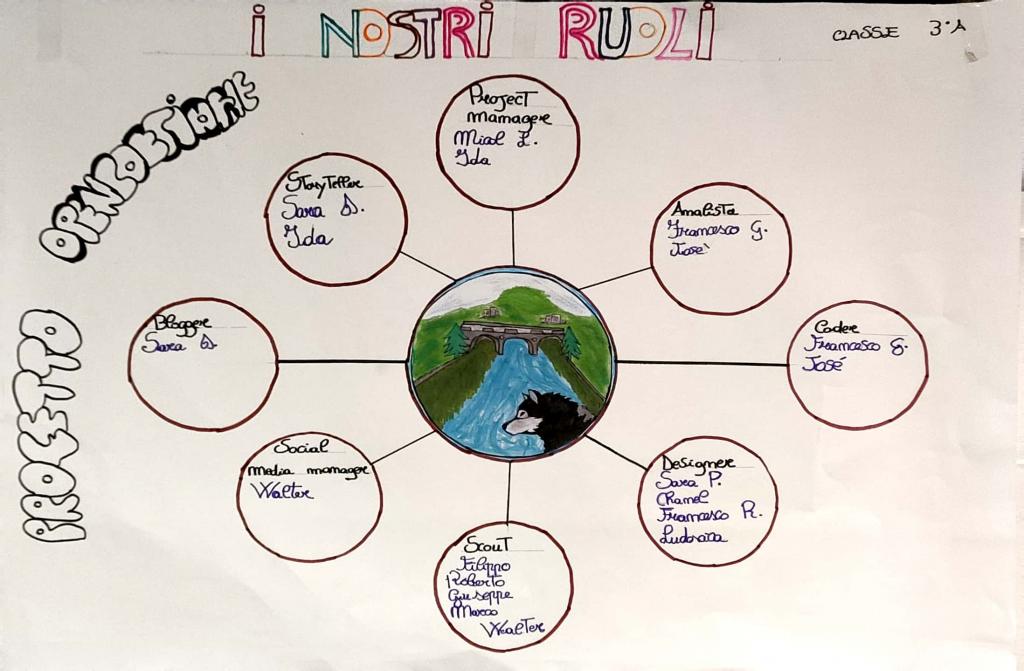 I NOSTRI RUOLI
CLASSE 3°A
PROGETTO
OPENCOESIONE
Project
Manager
Micol L.
Ida
StoryTeller
Sara D.
Ida
Analista
Francesco G.
Josè
Blogger
Sara D.
Coder
Francesco G.
José
Social
media manager
Walter
Designer
Sara P.
Chanel
Francesco R.
Ludovica
Scout
Filippo
Roberto
Giuseppe
Marco
Walter